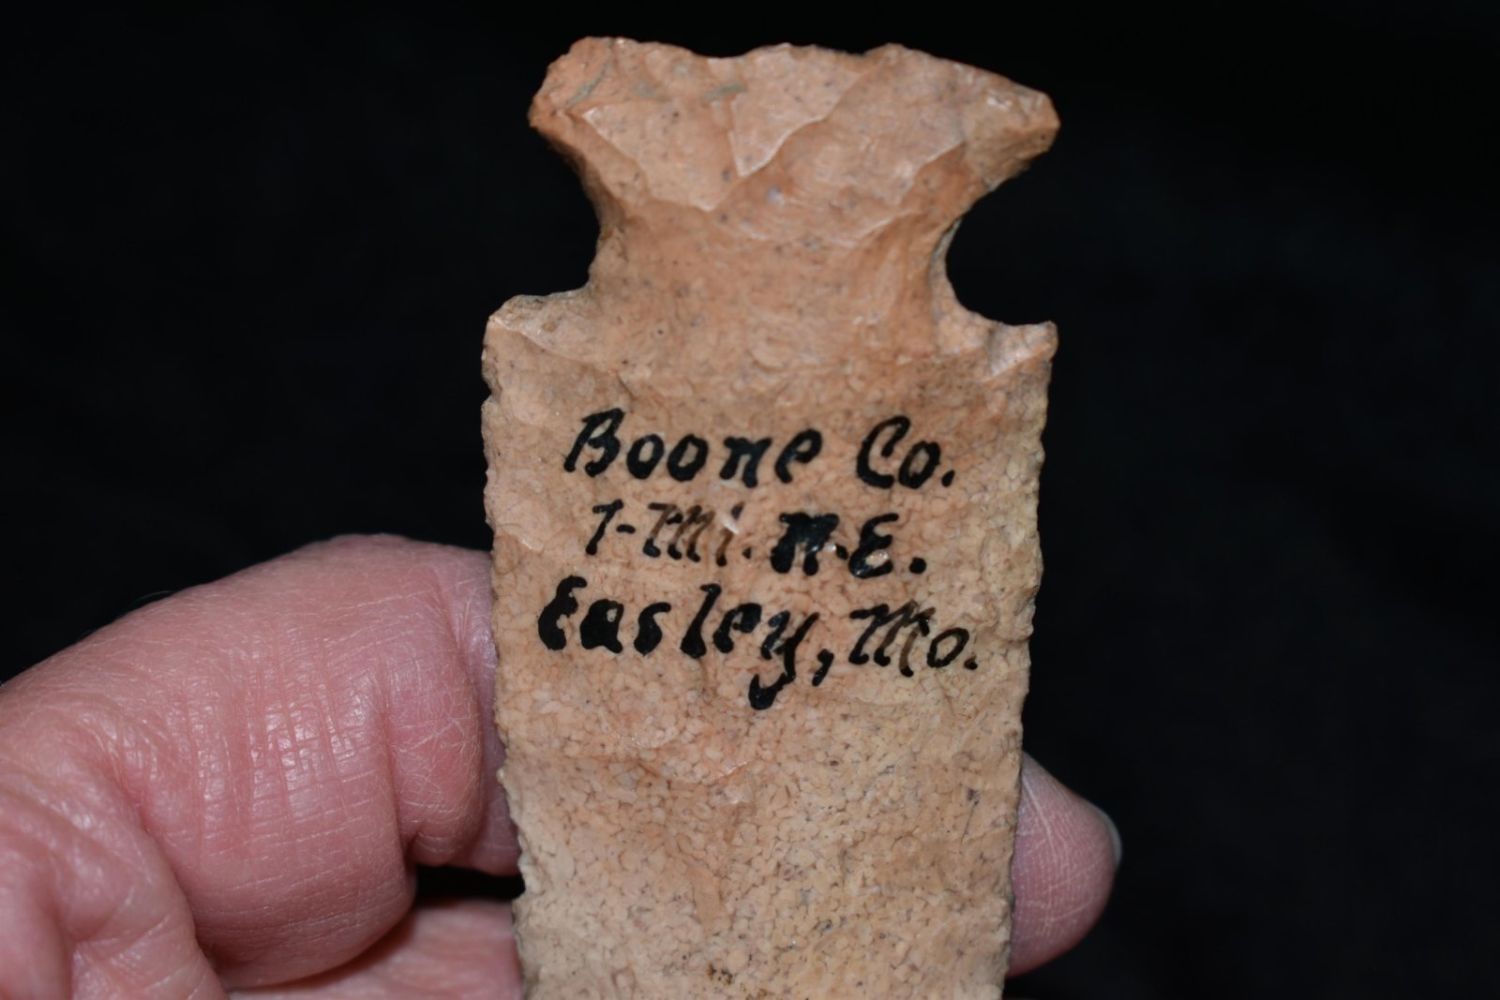 Boone Co.
1-Mi. N.E.
Easley, Mo.